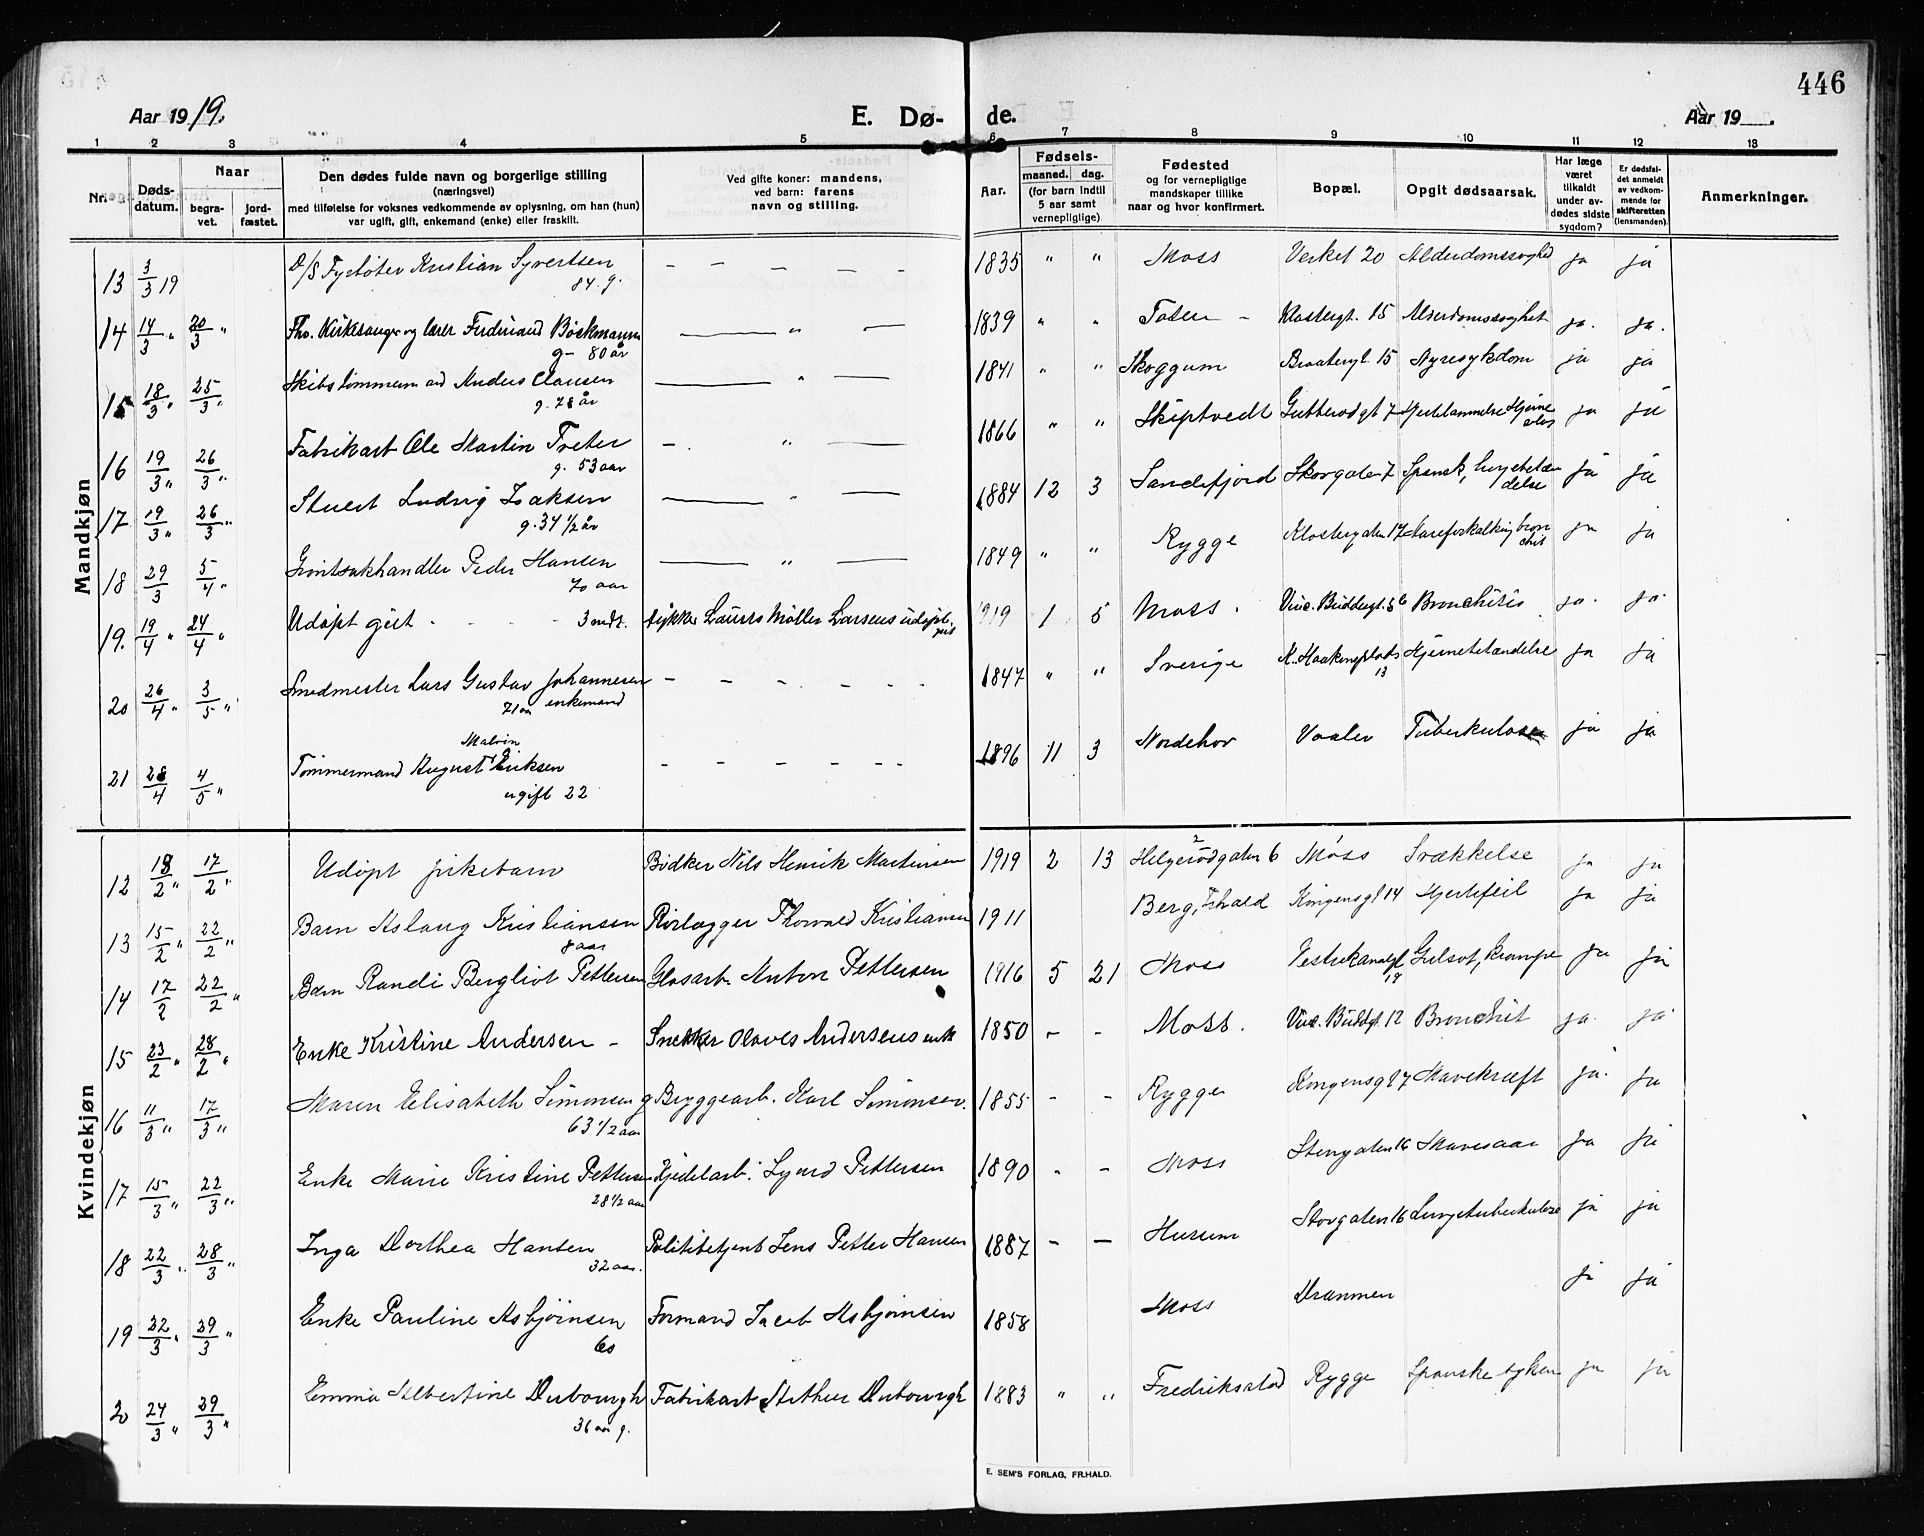 446
Aar 1919.
E. Dø-
de.
Aar 19 .
1 2 3 4 5 6 7 8 9 10 11 12 13
Nr.
Døds-datum.
Naar
begra-vet.
jord-fæstet.
Den dødes fulde navn og borgerlige stilling
(næringsvei)
med tilføielse for voksnes vedkommende av oplysning, om han (hun)
var ugift, gift, enkemand (enke) eller fraskilt.
Ved gifte koner: mandens,
ved barn: farens
navn og stilling.
Aar.
Fødsels-
maaned. dag.
(for barn indtil
5 aar samt
vernepligtige)
Fødested
og for vernepligtige
mandskaper tillike
naar og hvor konfirmert.
Bopæl.
Opgit dødsaarsak.
Har læge
været
tilkaldt
under av-
dødes sidste
sygdom?
Er dødsfal-
det anmeldt
av vedkom-
mende for
skifteretten
(lensmanden).
Anmerkninger.
Mandkjøn
13 3/3 19 D/S Fyrbøter Kristian Syvertsen 84. g. - - - - - 1835 " " Moss Verket 20 Alderdomssvaghed ja ja
14 14/3 " 20/3 " Fho. Kirkesanger og lærer Ferdinand Bøckmann g- 80 år — " — 1839 " " Toten - Klostergt. 15 Alderdomssvaghet ja. ja.
15 18/3 " 25/3 " Skibstømmermand Anders Clausen g. 78 år — " — 1841 " " Skoggum Braatengt. 15 Nyresykdom ja ja
16 19/3 " 26/3 " Fabrikart Ole Martin Treter g. 53 aar -. " — 1866 " " Skiptvedt Gutterødgt 7 Hjertelammelse Hjerne ja ja
17 19/3 " 26/3 " Stuert Ludvig Isaksen g. 34 1/2 år — " — 1884 12 3 Sandefjord Skovgaten 7 Spansk, lungebetændelse ja ja
18 29/3 5/4 " Grøntsakhandler Peder Hansen 70 aar — " — 1849 " " Rygge Klostergaten 17 Aareforkalkning bronchit ja ja
19. 19/4 " 24/4 " Udøpt gut - - - 3 mdr. Stykker Laurits Møller Larsens udøpt. gut 1919 1 5 Moss. Vinc. Buddegt. 56 Bronchitis ja. ja.
20 26/4 " 3/5 " Smedmester Lars Gustav Johannesen 71 aar enkemand - - - - - - 1847 " " Sverige K. Haakonsplads 13 Hjernebetændelse ja ja
21 28/4 4/5 " Tømmermand August Malvin Eriksen ugift 22 - - - - - - 1896 11 3 Norderhov Vaaler Tuberkulose ja ja
Kvindekjøn
12 13/2 " 17/2 " Udøpt pikebarn Bødker Nils Henrik Martinsen 1919 2 13 Helgerødgaten 6 Moss Svækkelse ja ja
13 15/2 " 22/2 " Barn Aslaug Kristiansen 8 aar Rørlægger Thorvald Kristiansen 1911 Berg, Frhald Kongensgt 14 Hjertefeil ja ja
14 17/2 22/2 " Barn Randi Bergliot Pettersen Glasarb. Anton Pettersen 1916 5 21 Moss Vestrekanalgt 19 Gulsot, krampe ja ja
15 23/2 " 28/2 " Enke Kristine Andersen - Snekker Olaves Andersens enke 1850 - - Moss. Vinc. Buddgt. 12 Bronchit ja. ja.
16 11/3 " 17/3 " Maren Elisabeth Simonsen g 63 1/2 aar Bryggearb. Karl Simonsen. 1855 - - Rygge Kongensgt 7 Mavekræft ja. ja
17 15/3 " 22/3 " Enke Marie Kristine Pettersen 28 1/2 aar Kjedelarb. Sigurd Pettersen 1890 - - Moss Stengaten 16 Mavesaar ja ja
18 22/3 " 28/3 " Inga Dorthea Hansen 32 aar. Politibetjent Jens Petter Hansen 1887 - - Hurum Storgaten 16 Lungetuberkulose ja ja
19 22/3 " 29/3 " Enke Pauline Asbjørnsen 60 Formand Jacob Asbjørnsen 1858 Moss Drammen ja ja
20 24/3 " 29/3 " Emma Albertine Dubourgh 36 aar g. Fabrikarb Arthur Dubourgh 1883 " " Fredriksstad Rygge Spanske syken ja ja
E. SEM'S FORLAG, FR.HALD.